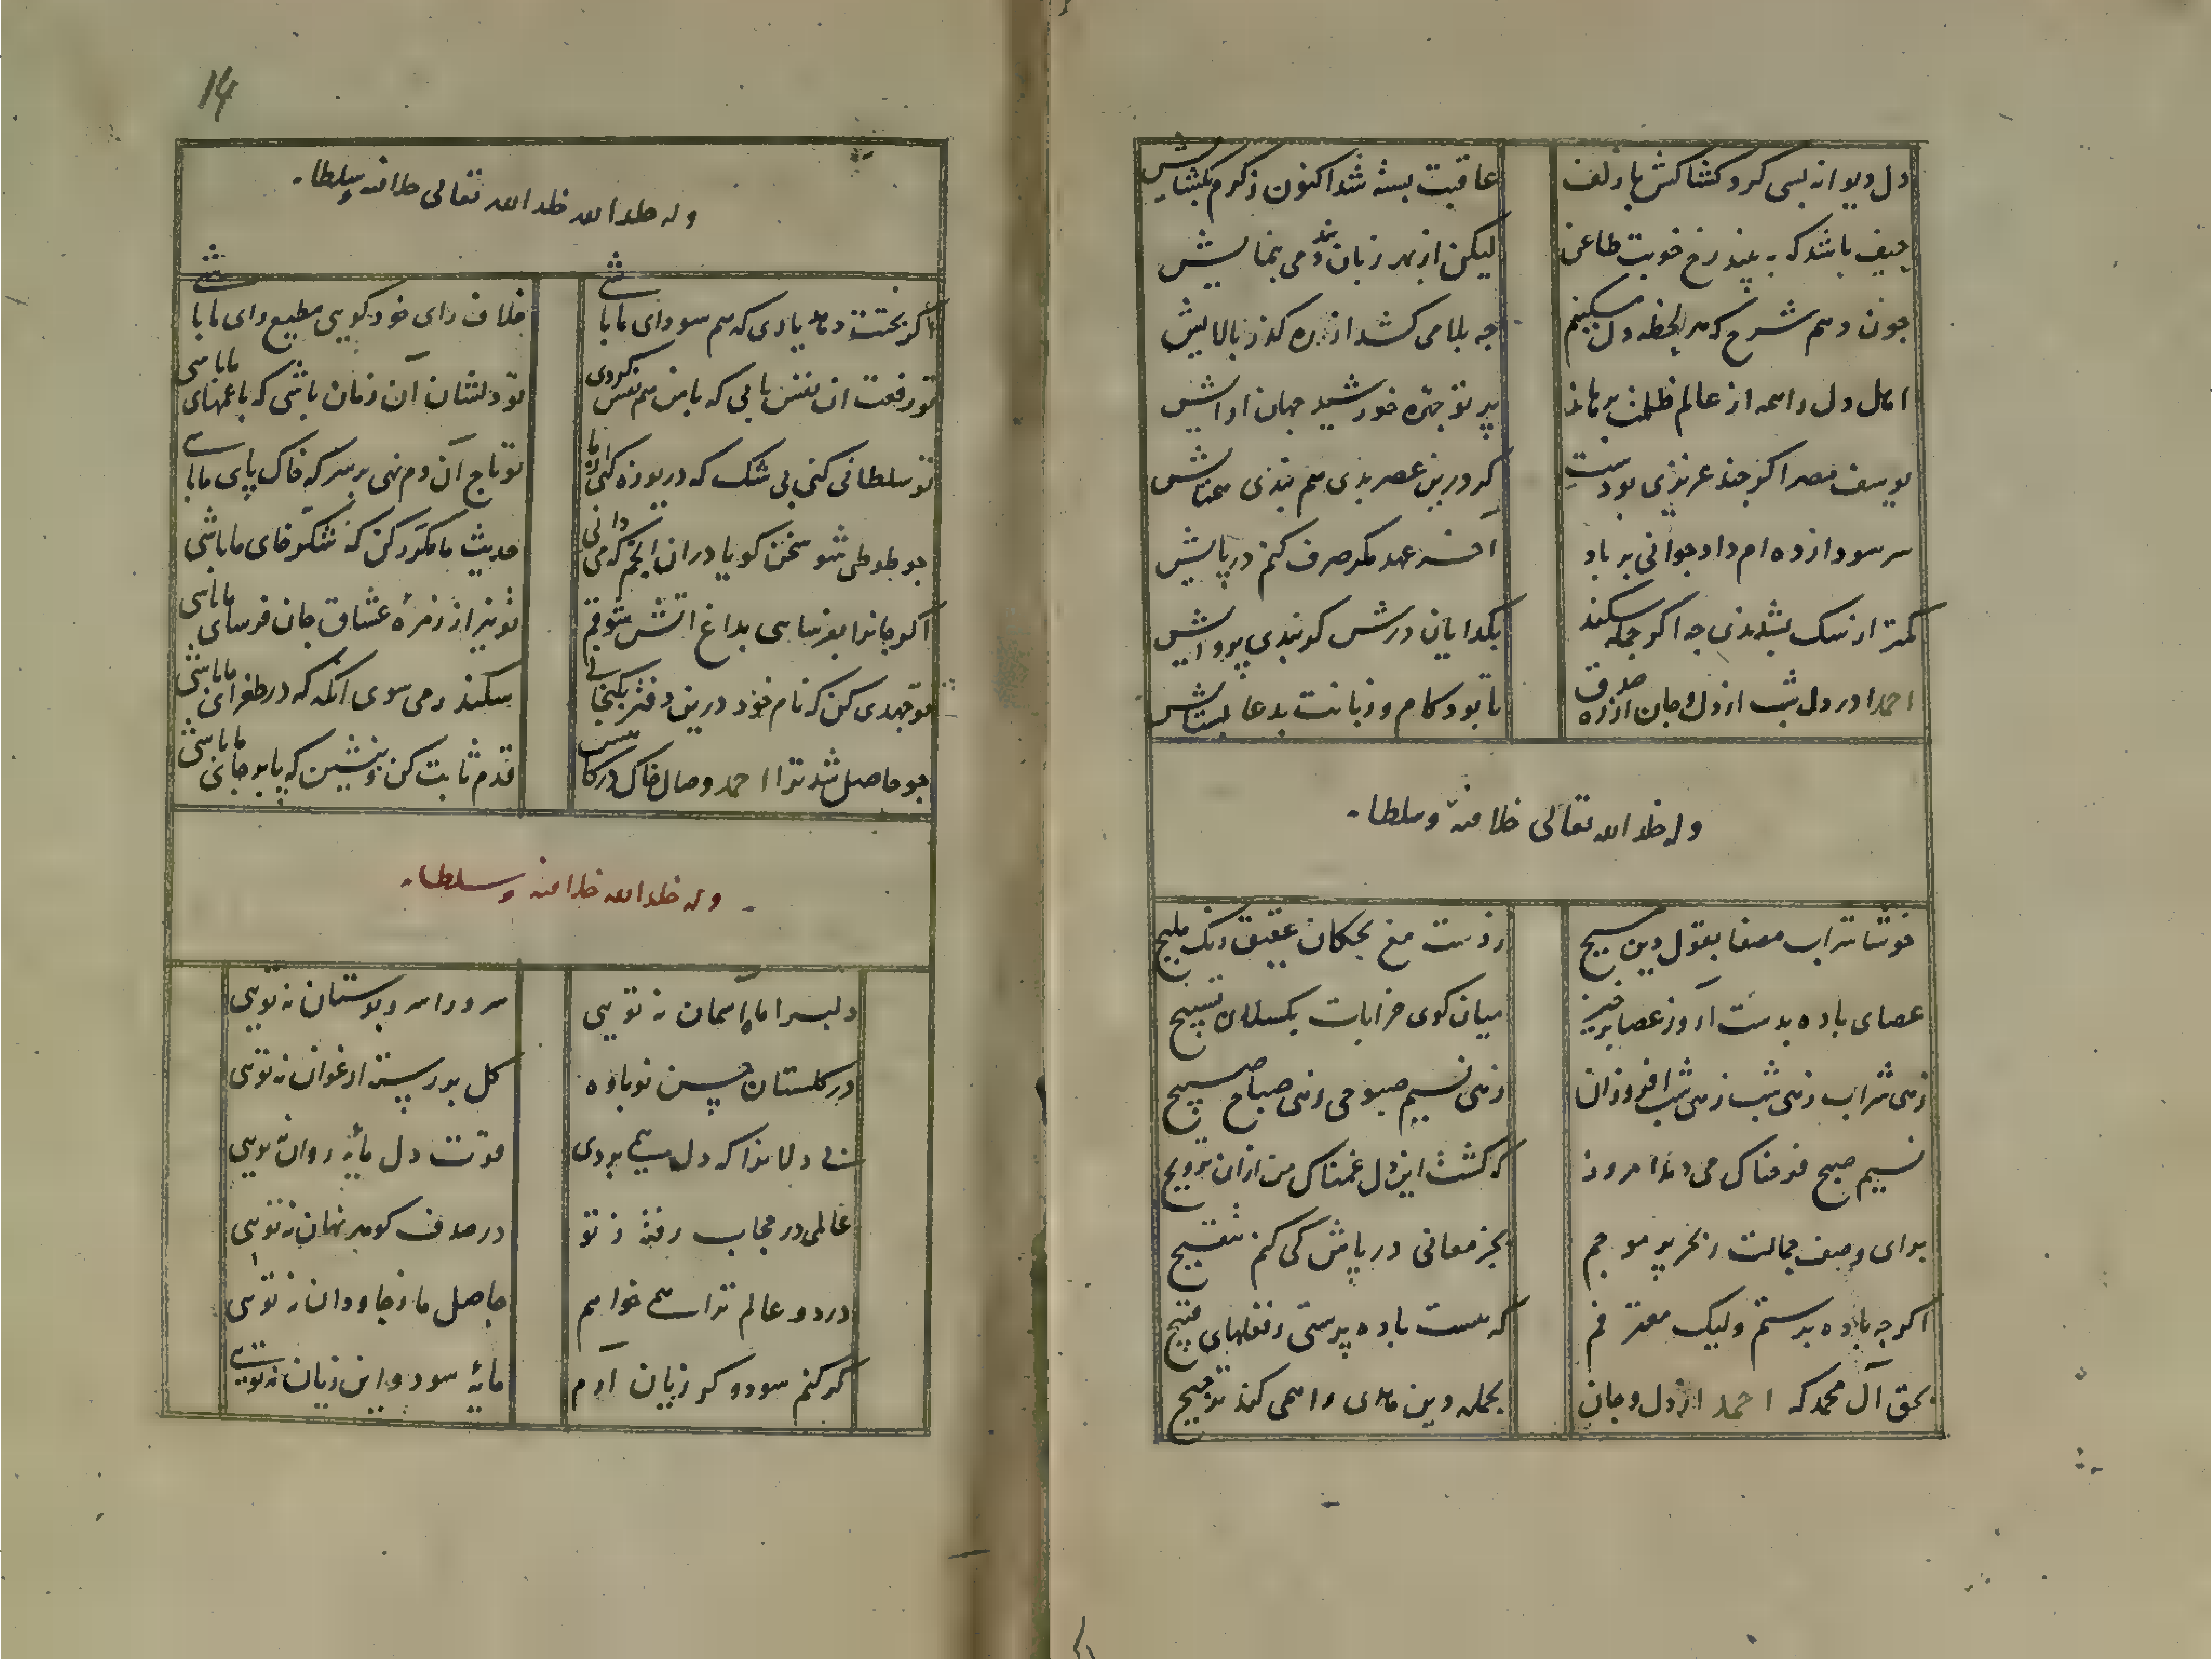 دل دیوانه بسی کرد کشاکش با زلف
عاقبت بسته شد اکنون ز کرم بکشایش
حیف باشد که به بیند رخ خوبت طاعن
لیکن از بهر زبان بند دمی بنمایش
چون دهم شرح که هر لحظه دل مسکینم
چه بلا می کشد از ره کذر بالایش
اهل دل را همه از عالم ظلمت برهاند
پرتو چهره خورشید جهان ارایش
یوسف مصر اکر چند عزیزی بودست
کر درین عصر بدی هم بندی همتایش
سر سودازده ام داد جوانی بر باد
آخر عهد مکر صرف کنم در پایش
کمتر از سک بشدندی چه اکر جمله سکند
بکدایان درش کر نبدی پروایش
احمدا در دل شب از دل و جان از ره صدق
تا بود کام و زبانت بدعا بستایش
وله خلد الله تعالی خلافته و سلطانه
خوشا شراب مصفا بقول دین مسیح
ز دست مغ بچکان عقیق رنک ملیح
عصای باده بدست آر وز عصا برخیز
میان کوی خرابات بکسلان تسبیح
زهی شراب زهی شب زهی شب افروزان
زهی نسیم صبوحی زهی صباح صبیح
نسیم صبح فرحناک می دمد امروز
که کشت این دل غمناک من ازان ترویح
برای وصف جمالت ز بحر پر موجم
بجز معانی در پاش کی کنم تنقیح
اکرچه باده پرستم ولیک معترفم
که هست باده پرستی ز فعلهای قبیح
بحق آل محمد که احمد از دل و جان
بجمله دین هدی را همی کند ترجیح
14
وله خلد الله خلد الله تعالی خلافته و سلطانه
اکر بختت دهد یاری که هم سودای ما باشی
خلاف رای خود کویی مطیع رای ما باشی
تو رفعت ان نفس یابی که با من هم نفس کردی
تو دلشان آن زمان باشی که با غمهای ما باشی
تو سلطانی کنی بی شک که دریوزه کنی از ما
تو تاج آن دم نهی بر سر که خاک پای ما باشی
چو طوطی شو سخن کویا دران انجم که می دانی
حدیث ما مکرر کن که شکر خای ما باشی
اکر جانرا بفرسایی بداغ اتش شوقم
تو نیز از زمره عشاق جان فرسای ما باشی
تو جهدی کن که نام خود درین دفتر بکنجانی
سکندر می سوی انکه که در طغرای ما باشی
چو حاصل شد ترا احمد وصال خاک درکاهست
قدم ثابت کن و بنشین که پا بر جای ما باشی
وله خلد الله خلافته و سلطانه
دلبرا ماه آسمان نه تویی
سرو را سرو بوستان نه تویی
در کلستان حسن نوباوه
کل بررسته ارغوان نه تویی
نی دلا نزا که دل همی بردی
قوت دل مایه روان نه تویی
عالمی در حجاب رفته ز تو
در صدف کوهر نهان نه تویی
در دو عالم ترا همی خواهم
حاصل ما ز جاودان نه تویی
کر کنم سود و کر زیان آرم
مایه سود و این زیان نه تویی